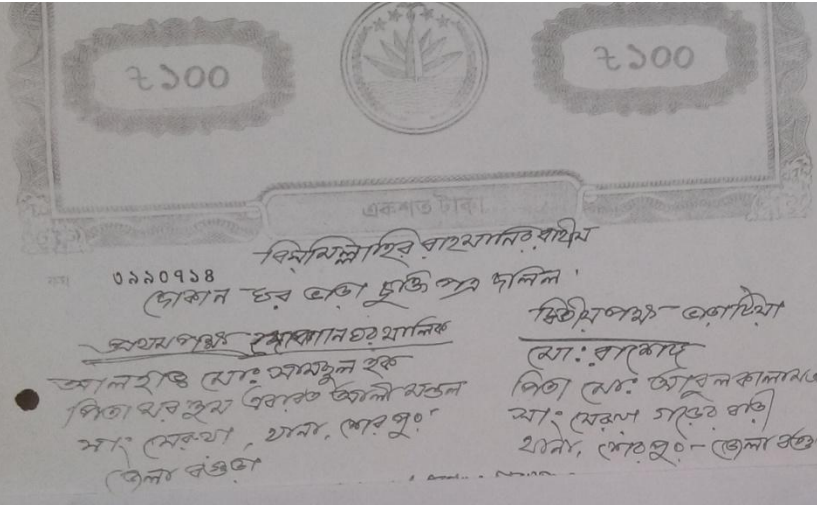 ৳১০০
৳১০০
একশত টাকা
বিসমিল্লাহির রাহমানির রাহীম
০৯৯০৭১৪
দোকান ঘর ভাড়া চুক্তি পত্র দলিল।
প্রথমপক্ষ দোকানঘর মালিক
আলহাজ্ব মোঃ সামছুল হক
পিতা মরহুম এবারত আলী মন্ডল
সাং সেরুয়া, থানা, শেরপুর
জেলা বগুড়া
দ্বিতীয়পক্ষ - ভাড়াটিয়া
মো: রাশেদ
পিতা মো: আবুল কালাম
সাং সেরুয়া গড়ের বাড়ী
থানা, শেরপুর - জেলা বগু